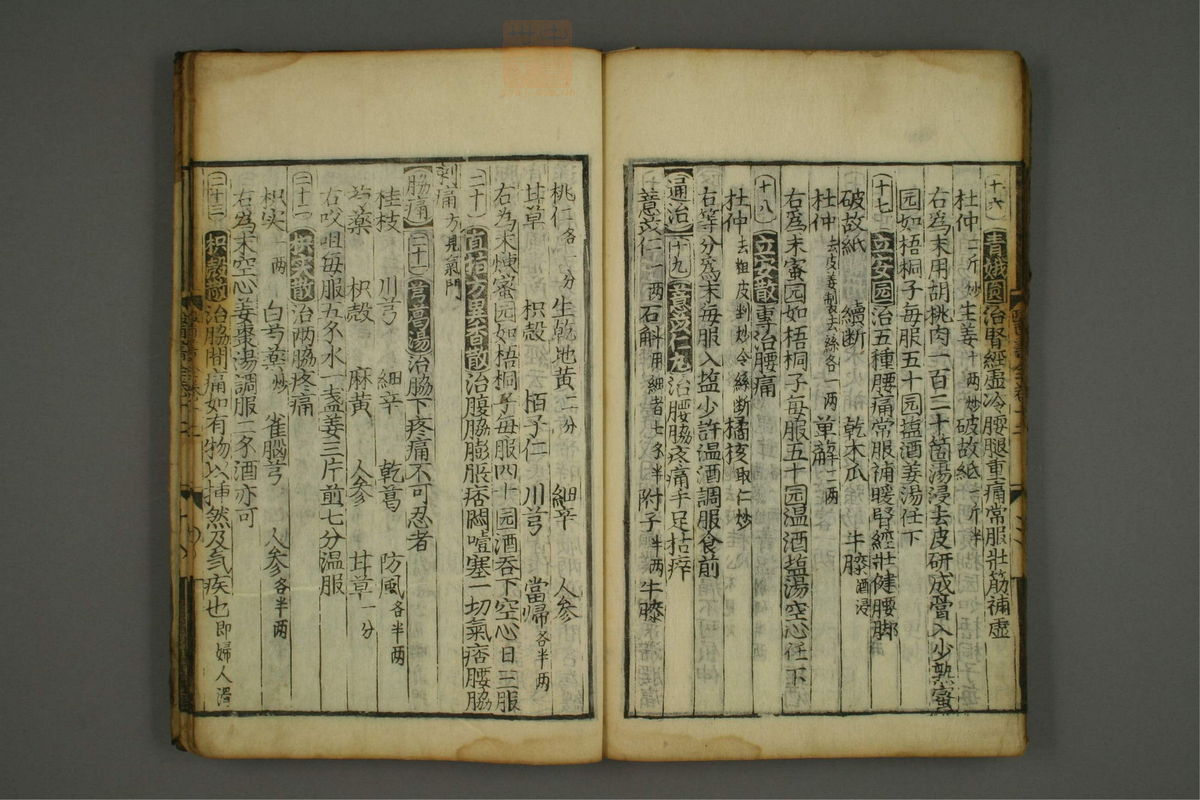 十六 青娥圓 治腎經虛冷腰腿重痛常服壯筋補虛
杜仲一斤炒 生姜十两炒 破故紙一斤半
右爲末用胡桃肉一百二十箇湯浸去皮研成膏入少熟蜜
园如梧桐子每服五十园塩酒姜湯任下
十七 立安园 治五種腰痛常服補暖腎經壯健腰脚
破故紙 續斷 乾木瓜 牛膝酒浸
杜仲去皮姜製去絲各一两 萆薢二两
右爲末蜜园如梧桐子每服五十园温酒塩湯空心任下
十八 立安散 專治腰痛
杜仲去粗皮剉炒令絲断 橘核取仁炒
右等分爲末每服入塩少許温酒調服食前
通治 十九 薏苡仁丸 治腰脇疼痛手足枯瘁
薏苡仁一两 石斛用細者七錢半 附子半两 牛膝
桃仁各一分 生乾地黄二分 細辛 人参
甘草 枳殼 栢子仁 川芎 當帰各半两
右為末煉蜜园如梧桐子每服四十园酒吞下空心日三服
二十 直指方異香散 治腹脇膨脹痞悶噎塞一切氣痞腰脇
刺痛方見氣門
脇痛 二十一 芎葛湯 治脇下疼痛不可忍者
桂枝 川芎 細辛 乾葛 防風各半两
芍藥 枳殼 麻黄 人參 甘草一分
右㕮咀每服五錢水一盞姜三片煎七分温服
二十二 枳实散 治两脇疼痛
枳实一两 白芍藥炒 雀腦芎 人參各半两
右為末空心姜棗湯調服二錢酒亦可
二十三 枳殼散 治脇間痛如有物以揷然及気疾也即婦人